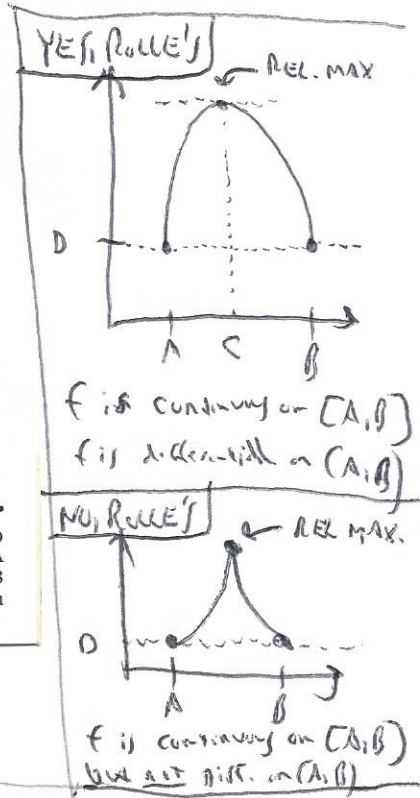 YES, ROLLE'S
REL. MAX
D
A C B
f is continuous on [A,B]
f is differentiable on (A,B)
NO, ROLLE'S
REL MAX.
D
A B
f is continuous on [A,B]
but not diff. on (A,B)